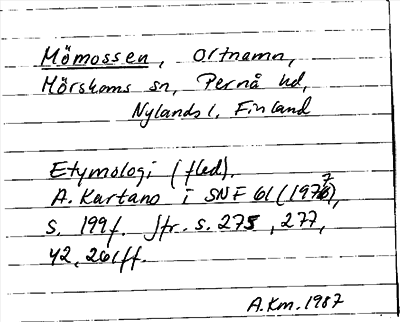 Mömossen, Ortnamn,
Mörskoms sn, Pernå hd,
Nylands l. Finland
Etymologi (fled).
A. Kartano i SNF 61 (1977),
s. 199f. Jfr. s. 275, 277,
42, 261ff.
A.Km. 1987